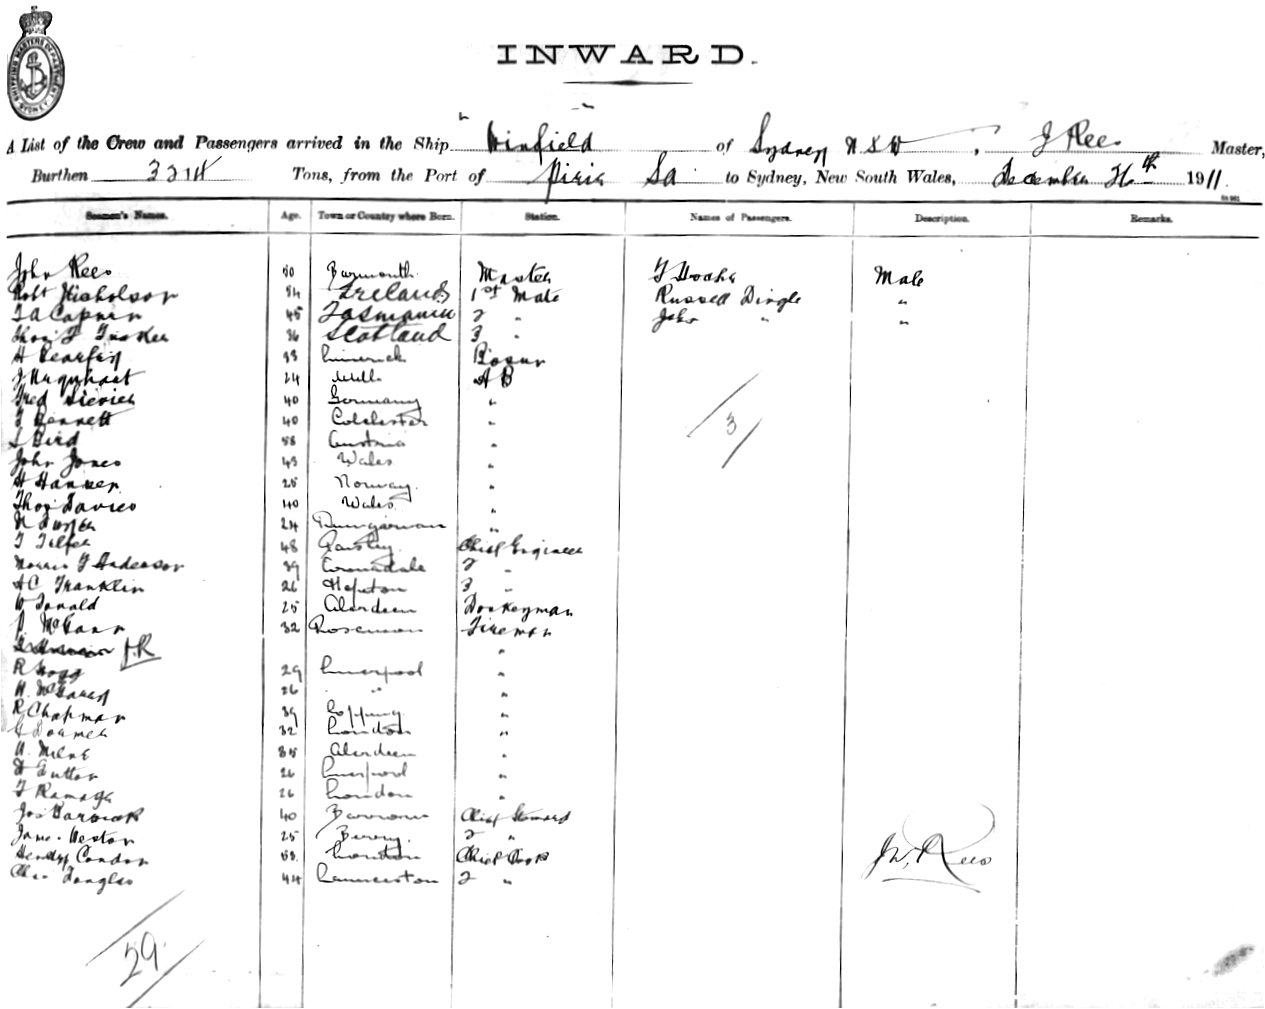 SHIPPING MASTERS DEPARTMENT SYDNEY
INWARD.
A List of the Crew and Passengers arrived in the Ship Winfield of Sydney N S W, J Rees Master,
Burthen 3314 Tons, from the Port of Pirie Sa to Sydney, New South Wales, December 26th 1911.
Seamen's Names. Age. Town or Country where Born. Station. Names of Passengers. Description. Remarks.
John Rees 50 Barmouth Master T Hoahr Male
Robt Nicholson 54 Ireland 1st Mate Russell Dingle "
45 Tasmania 2 " John " "
Thos F 36 Scotland 3 "
H 33 Limerick Bosun
J Urquhart 24 A B
Fred 40 Germany "
T Bennett 40 Colchester "
Bird 58 Austria "
John Jones 43 Wales "
H Hansen 25 Norway "
Thos Davies 40 Wales "
24 Dungarvan "
T Telfer 48 Chief Engineer
Morris T Anderson 39 2 "
A C Franklin 26 3 "
W Donald 25 Aberdeen Donkeyman
P McCann 32 Fireman
J.R "
R Hogg 29 Liverpool "
26 " "
R Chapman 39 "
32 London "
A. Milne 35 Aberdeen "
Sutton 26 Liverpool "
T Ramage 26 London "
Jos Barwick 40 Barrow Chief Steward
James Weston 25 2 "
Henry Condon 52 London Chief Cook
Chas Douglas 44 Launceston 2 "
3
J W. Rees
29